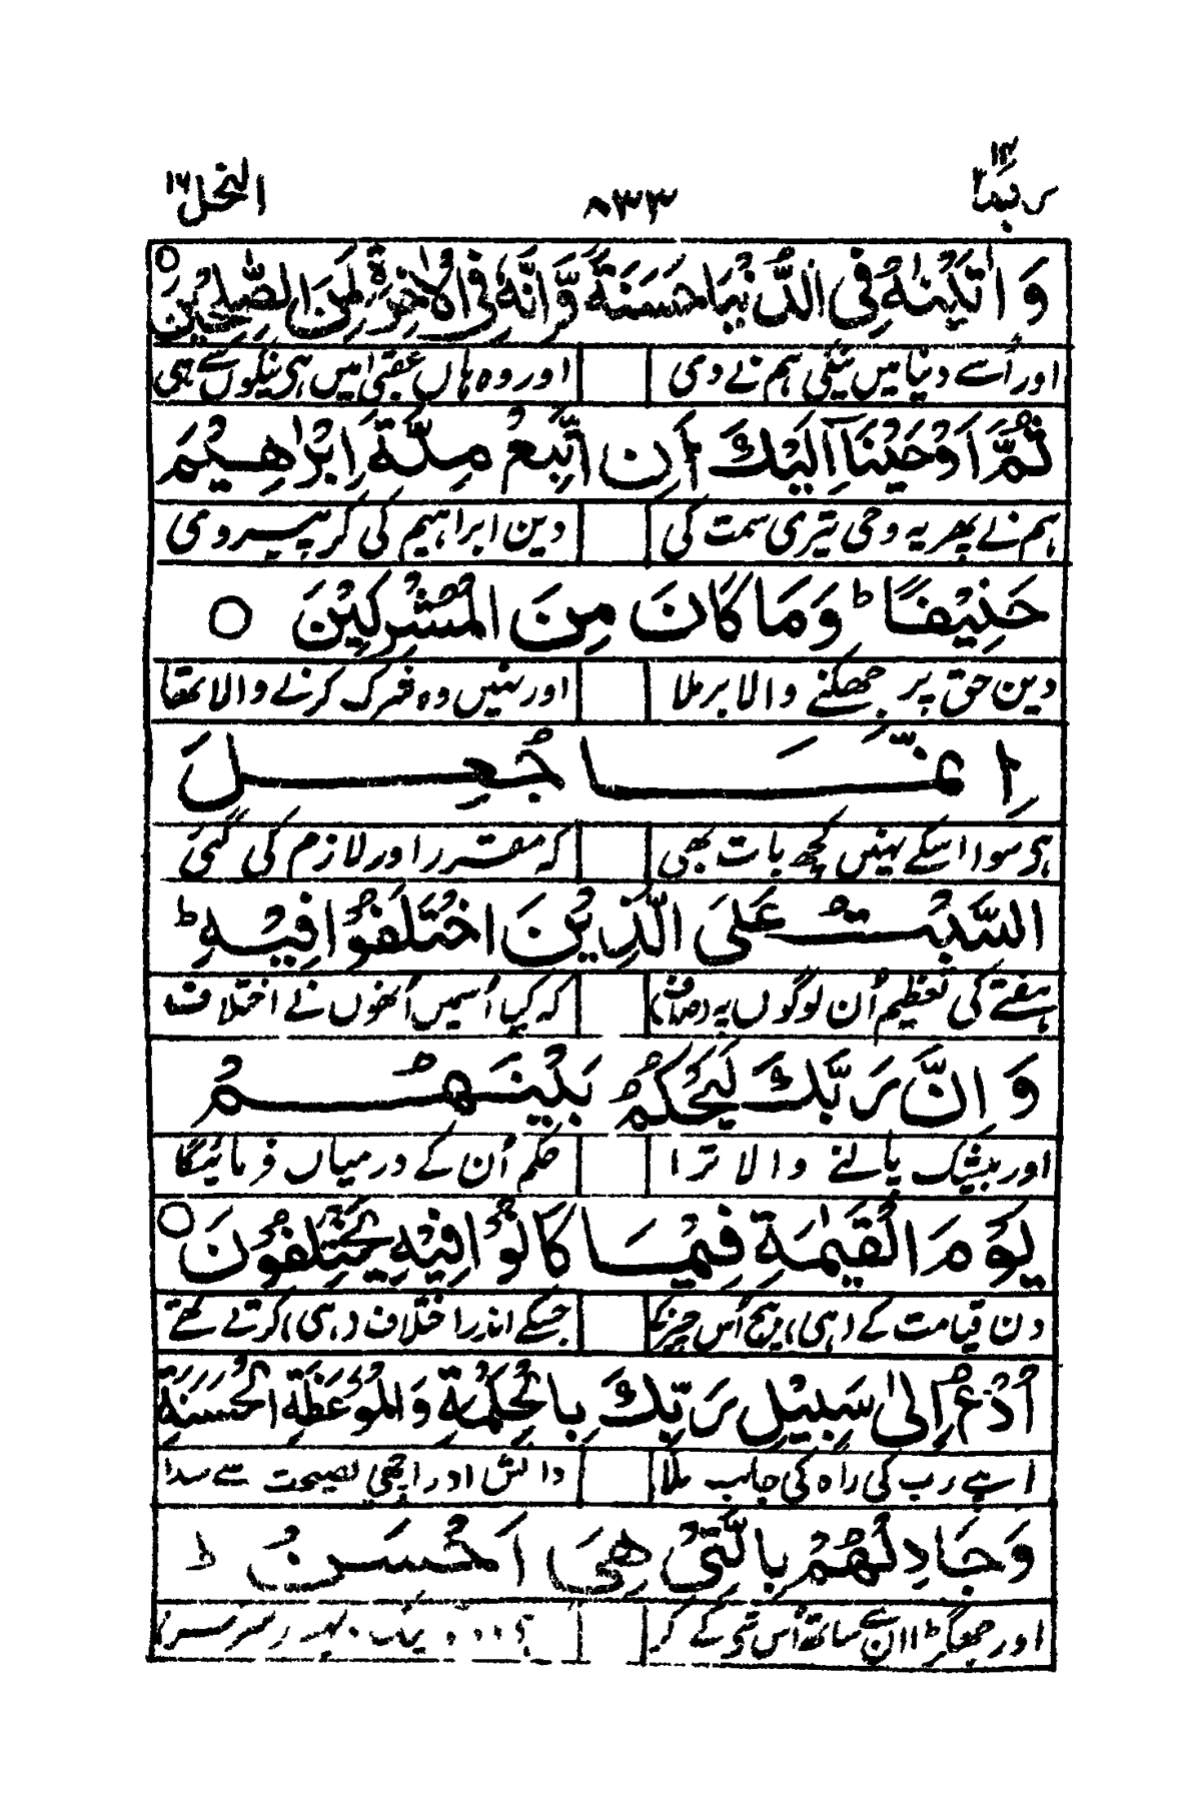 ربما ۱۴
۸۳۳
النحل ۱۶
وَاٰتَيْنٰهُ فِى الدُّنْيَا حَسَنَةً وَّاِنَّهٗ فِى الْاٰخِرَةِ لَمِنَ الصّٰلِحِيْنَ ○
اور اُسے دنیا میں نیکی ہم نے دی اور وہ ہاں عقبیٰ میں ہی نیکوں سے ہی
ثُمَّ اَوْحَيْنَآ اِلَيْكَ اَنِ اتَّبِعْ مِلَّةَ اِبْرٰهِيْمَ
ہم نے پھر یہ وحی تیری سمت کی دین ابراہیم کی کر پیروی
حَنِيْفًا ؕ وَمَا كَانَ مِنَ الْمُشْرِكِيْنَ ○
دین حق پر جھکنے والا برملا اور نہیں وہ شرک کرنے والا تھا
اِنَّمَا جُعِلَ
ہی سوا اسکے نہیں کچھ بات بھی کہ مقرر اور لازم کی گئی
السَّبْتُ عَلَى الَّذِيْنَ اخْتَلَفُوْا فِيْهِ ؕ
ہفتے کی تعظیم اُن لوگوں پہ (صاف) کہ کیا اُسمیں اُنھوں نے اختلاف
وَاِنَّ رَبَّكَ لَيَحْكُمُ بَيْنَهُمْ
اور بیشک پالنے والا ترا حکم اُن کے درمیاں فرمائیگا
يَوْمَ الْقِيٰمَةِ فِيْمَا كَانُوْا فِيْهِ يَخْتَلِفُوْنَ ○
دن قیامت کے (ہی) بیچ اُس چیز کے جسکے اندر اختلاف (ہی) کرتے تھے
اُدْعُ اِلٰى سَبِيْلِ رَبِّكَ بِالْحِكْمَةِ وَالْمَوْعِظَةِ الْحَسَنَةِ
اپنے رب کی راہ کی جانب بلا دانش اور اچھی نصیحت سے سدا
وَجَادِلْهُمْ بِالَّتِىْ هِىَ اَحْسَنُ ؕ
اور جھگڑ ان سے ساتھ اُس کے کر